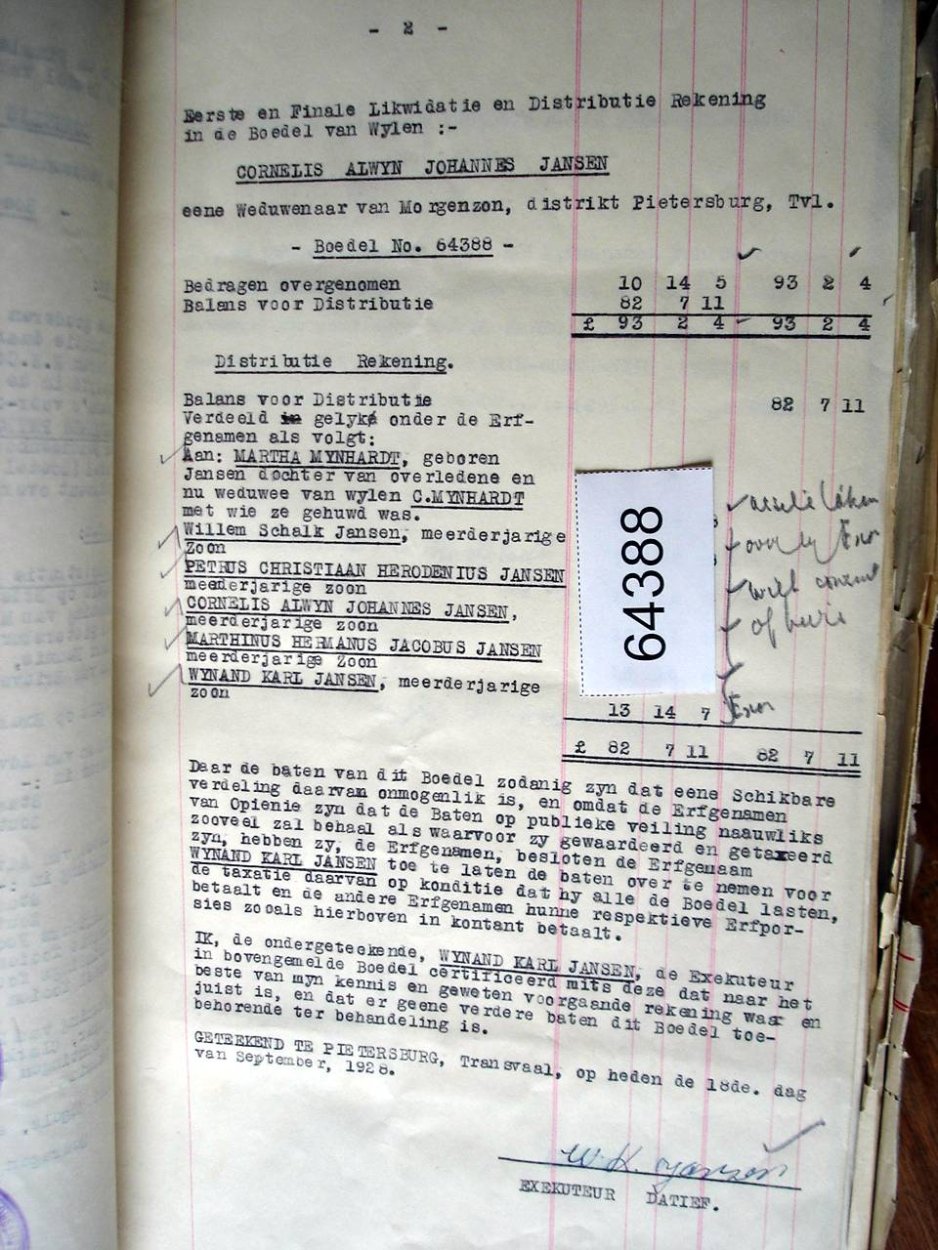 - 2 -
Eerste en Finale Likwidatie en Distributie Rekening
in de Boedel van Wylen :-
CORNELIS ALWYN JOHANNES JANSEN
eene Weduwenaar van Morgenzon, distrikt Pietersburg, Tvl.
- Boedel No. 64388 -
Bedragen overgenomen 10 14 5 93 2 4
Balans voor Distributie 82 7 11
£ 93 2 4 93 2 4
Distributie Rekening.
Balans voor Distributie 82 7 11
Verdeeld in gelyke onder de Erf-
genamen als volgt:
Aan: MARTHA MYNHARDT, geboren
Jansen dochter van overledene en
nu weduwee van wylen C.MYNHARDT
met wie ze gehuwd was.
Willem Schalk Jansen, meerderjarige
Zoon
PETRUS CHRISTIAAN HERODENIUS JANSEN
meerderjarige zoon
CORNELIS ALWYN JOHANNES JANSEN,
meerderjarige zoon
MARTHINUS HERMANUS JACOBUS JANSEN
meerderjarige Zoon
WYNAND KARL JANSEN, meerderjarige
zoon
64388
over by
with consent
of heirs
13 14 7
£ 82 7 11 82 7 11
Daar de baten van dit Boedel zodanig zyn dat eene Schikbare
verdeling daarvan onmogenlik is, en omdat de Erfgenamen
van Opienie zyn dat de Baten op publieke veiling naauwliks
zooveel zal behaal als waarvoor zy gewaardeerd en getaxeerd
zyn, hebben zy, de Erfgenamen, besloten de Erfgenaam
WYNAND KARL JANSEN toe te laten de baten over te nemen voor
de taxatie daarvan op konditie dat hy alle de Boedel lasten,
betaalt en de andere Erfgenamen hunne respektieve Erfpor-
sies zooals hierboven in kontant betaalt.
IK, de ondergeteekende, WYNAND KARL JANSEN, de Exekuteur
in bovengemelde Boedel certificeerd mits deze dat naar het
beste van myn kennis en geweten voorgaande rekening waar en
juist is, en dat er geene verdere baten dit Boedel toe-
behorende ter behandeling is.
GETEEKEND TE PIETERSBURG, Transvaal, op heden de 18de. dag
van September, 1928.
W. K. Jansen
EXEKUTEUR DATIEF.